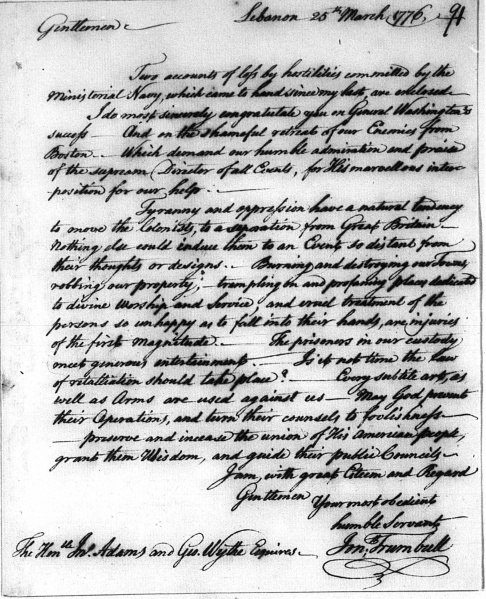 Lebanon 25th March 1776. 91
Gentlemen
Two accounts of loss by hostilities committed by the
Ministerial Navy, which came to hand since my last, are enclosed.
I do most sincerely congratulate you on General Washington's
success — And on the shameful retreat of our Enemies from
Boston — Which demand our humble admiration and praise
of the supream Director of all Events, for His marvellous inter-
position for our help. —
Tyranny and oppression have a natural tendency
to move the Colonists, to a separation from Great Britain —
Nothing else could induce them to an Event so distant from
their thoughts or designs. — Burning and destroying our Towns,
robbing our property; — trampling on and profaning places dedicated
to divine Worship and Service and cruel treatment of the
persons so unhappy as to fall into their hands, are injuries
of the first Magnitude — The prisoners in our custody
meet generous entertainment — Is it not time the law
of retalliation should take place? — Every subtile art, as
well as Arms are used against us — May God prevent
their Operations, and turn their counsels to foolishness —
— preserve and increase the union of His American people,
grant them Wisdom, and guide their public Councils —
I am, with great Esteem and Regard
Gentlemen
Your most obedient
humble Servant
Jonth Trumbull
The Honble Jno. Adams and Geo. Wythe Esquires —